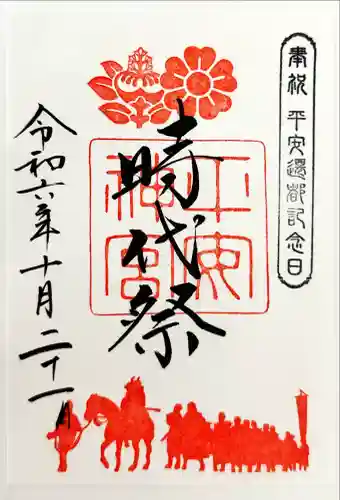 奉祝 平安遷都記念日
時代祭
平安神宮
令和六年十月二十一日